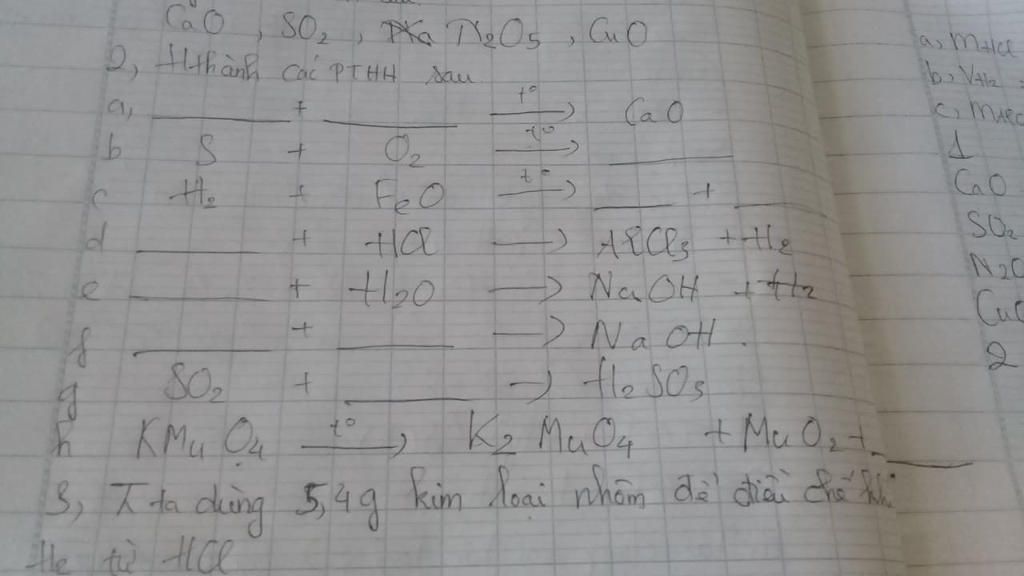 CaO, SO2, N2O5, CuO
2, H thành các PTHH sau
a, ______ + ______ t°→ CaO
b S + O2 t°→ ______
c H2 + FeO t°→ ____ + ____
d ______ + HCl → AlCl3 + H2
e ______ + H2O → NaOH + H2
f ______ + ______ → NaOH.
g SO2 + ______ → H2SO3
h KMnO4 t°→ K2MnO4 + MnO2 + ____
3, ta dùng 5,4g kim loại nhôm để điều chế khí
H2 từ HCl
a,
b,
c,
1
CaO
SO2
2